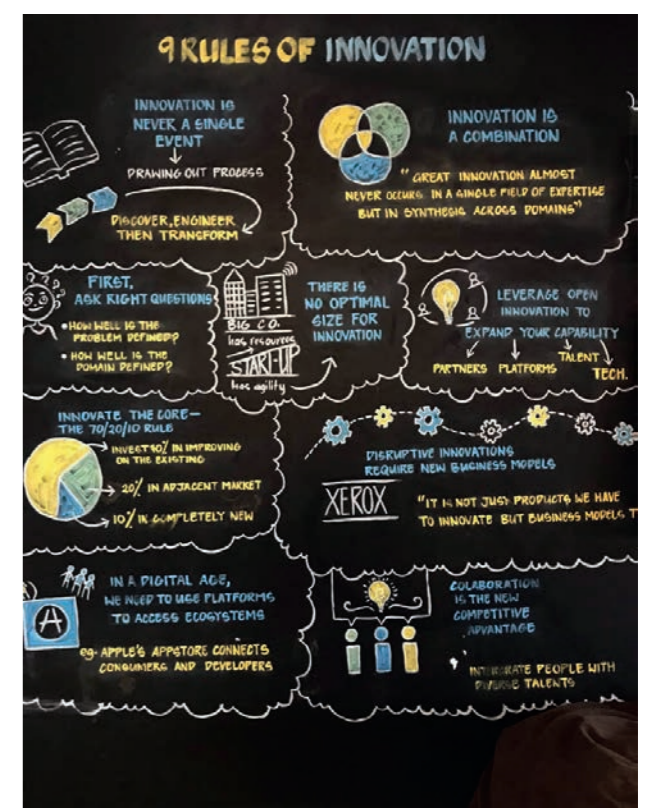 9 RULES OF INNOVATION
INNOVATION IS
NEVER A SINGLE
EVENT
DRAWING OUT PROCESS
DISCOVER, ENGINEER
THEN TRANSFORM
INNOVATION IS
A COMBINATION
"GREAT INNOVATION ALMOST
NEVER OCCURS IN A SINGLE FIELD OF EXPERTISE
BUT IN SYNTHESIS ACROSS DOMAINS"
FIRST,
ASK RIGHT QUESTIONS
• HOW WELL IS THE
PROBLEM DEFINED?
• HOW WELL IS THE
DOMAIN DEFINED?
BIG CO.
has resources
START-UP
has agility
THERE IS
NO OPTIMAL
SIZE FOR
INNOVATION
LEVERAGE OPEN
INNOVATION TO
EXPAND YOUR CAPABILITY
PARTNERS PLATFORMS TALENT TECH.
INNOVATE THE CORE—
THE 70/20/10 RULE
INVEST % IN IMPROVING
ON THE EXISTING
20% IN ADJACENT MARKET
10% IN COMPLETELY NEW
DISRUPTIVE INNOVATIONS
REQUIRE NEW BUSINESS MODELS
XEROX
"IT IS NOT JUST PRODUCTS WE HAVE
TO INNOVATE BUT BUSINESS MODELS T
IN A DIGITAL AGE,
WE NEED TO USE PLATFORMS
TO ACCESS ECOSYSTEMS
eg. APPLE'S APPSTORE CONNECTS
CONSUMERS AND DEVELOPERS
A
COLABORATION
IS THE NEW
COMPETITIVE
ADVANTAGE
PEOPLE WITH
DIVERSE TALENTS